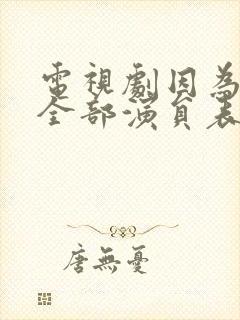 電視劇因為
全部演員表
唐無憂